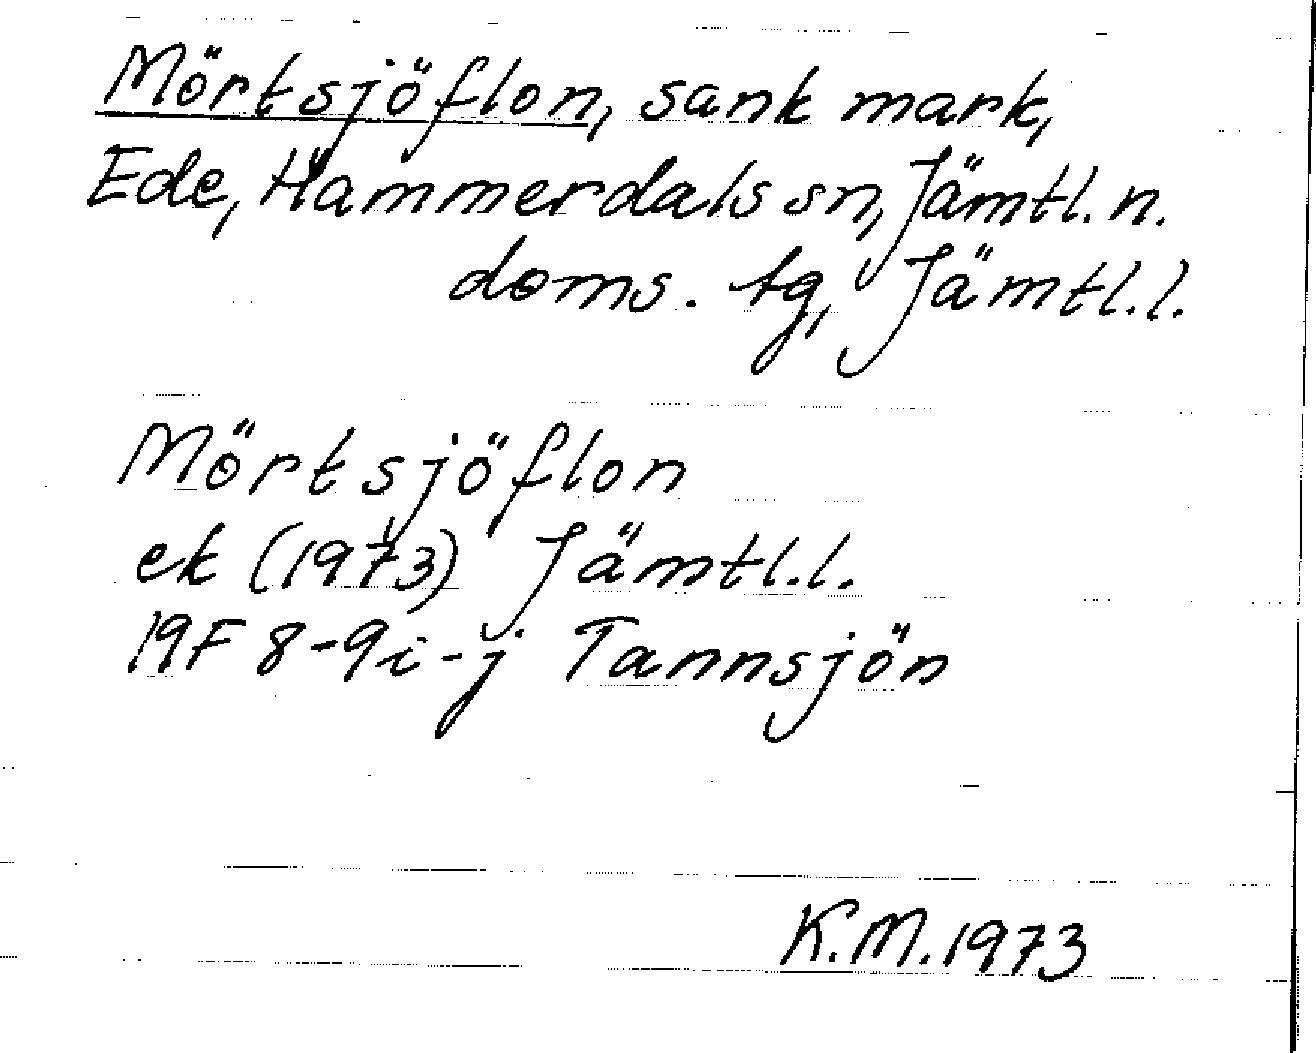 Mörtsjöflon, sank mark,
Ede, Hammerdals sn, Jämtl. n.
doms. tg, Jämtl. l.
Mörtsjöflon
ek (1973) Jämtl. l.
19F 8-9i-j Tannsjön
K.M. 1973